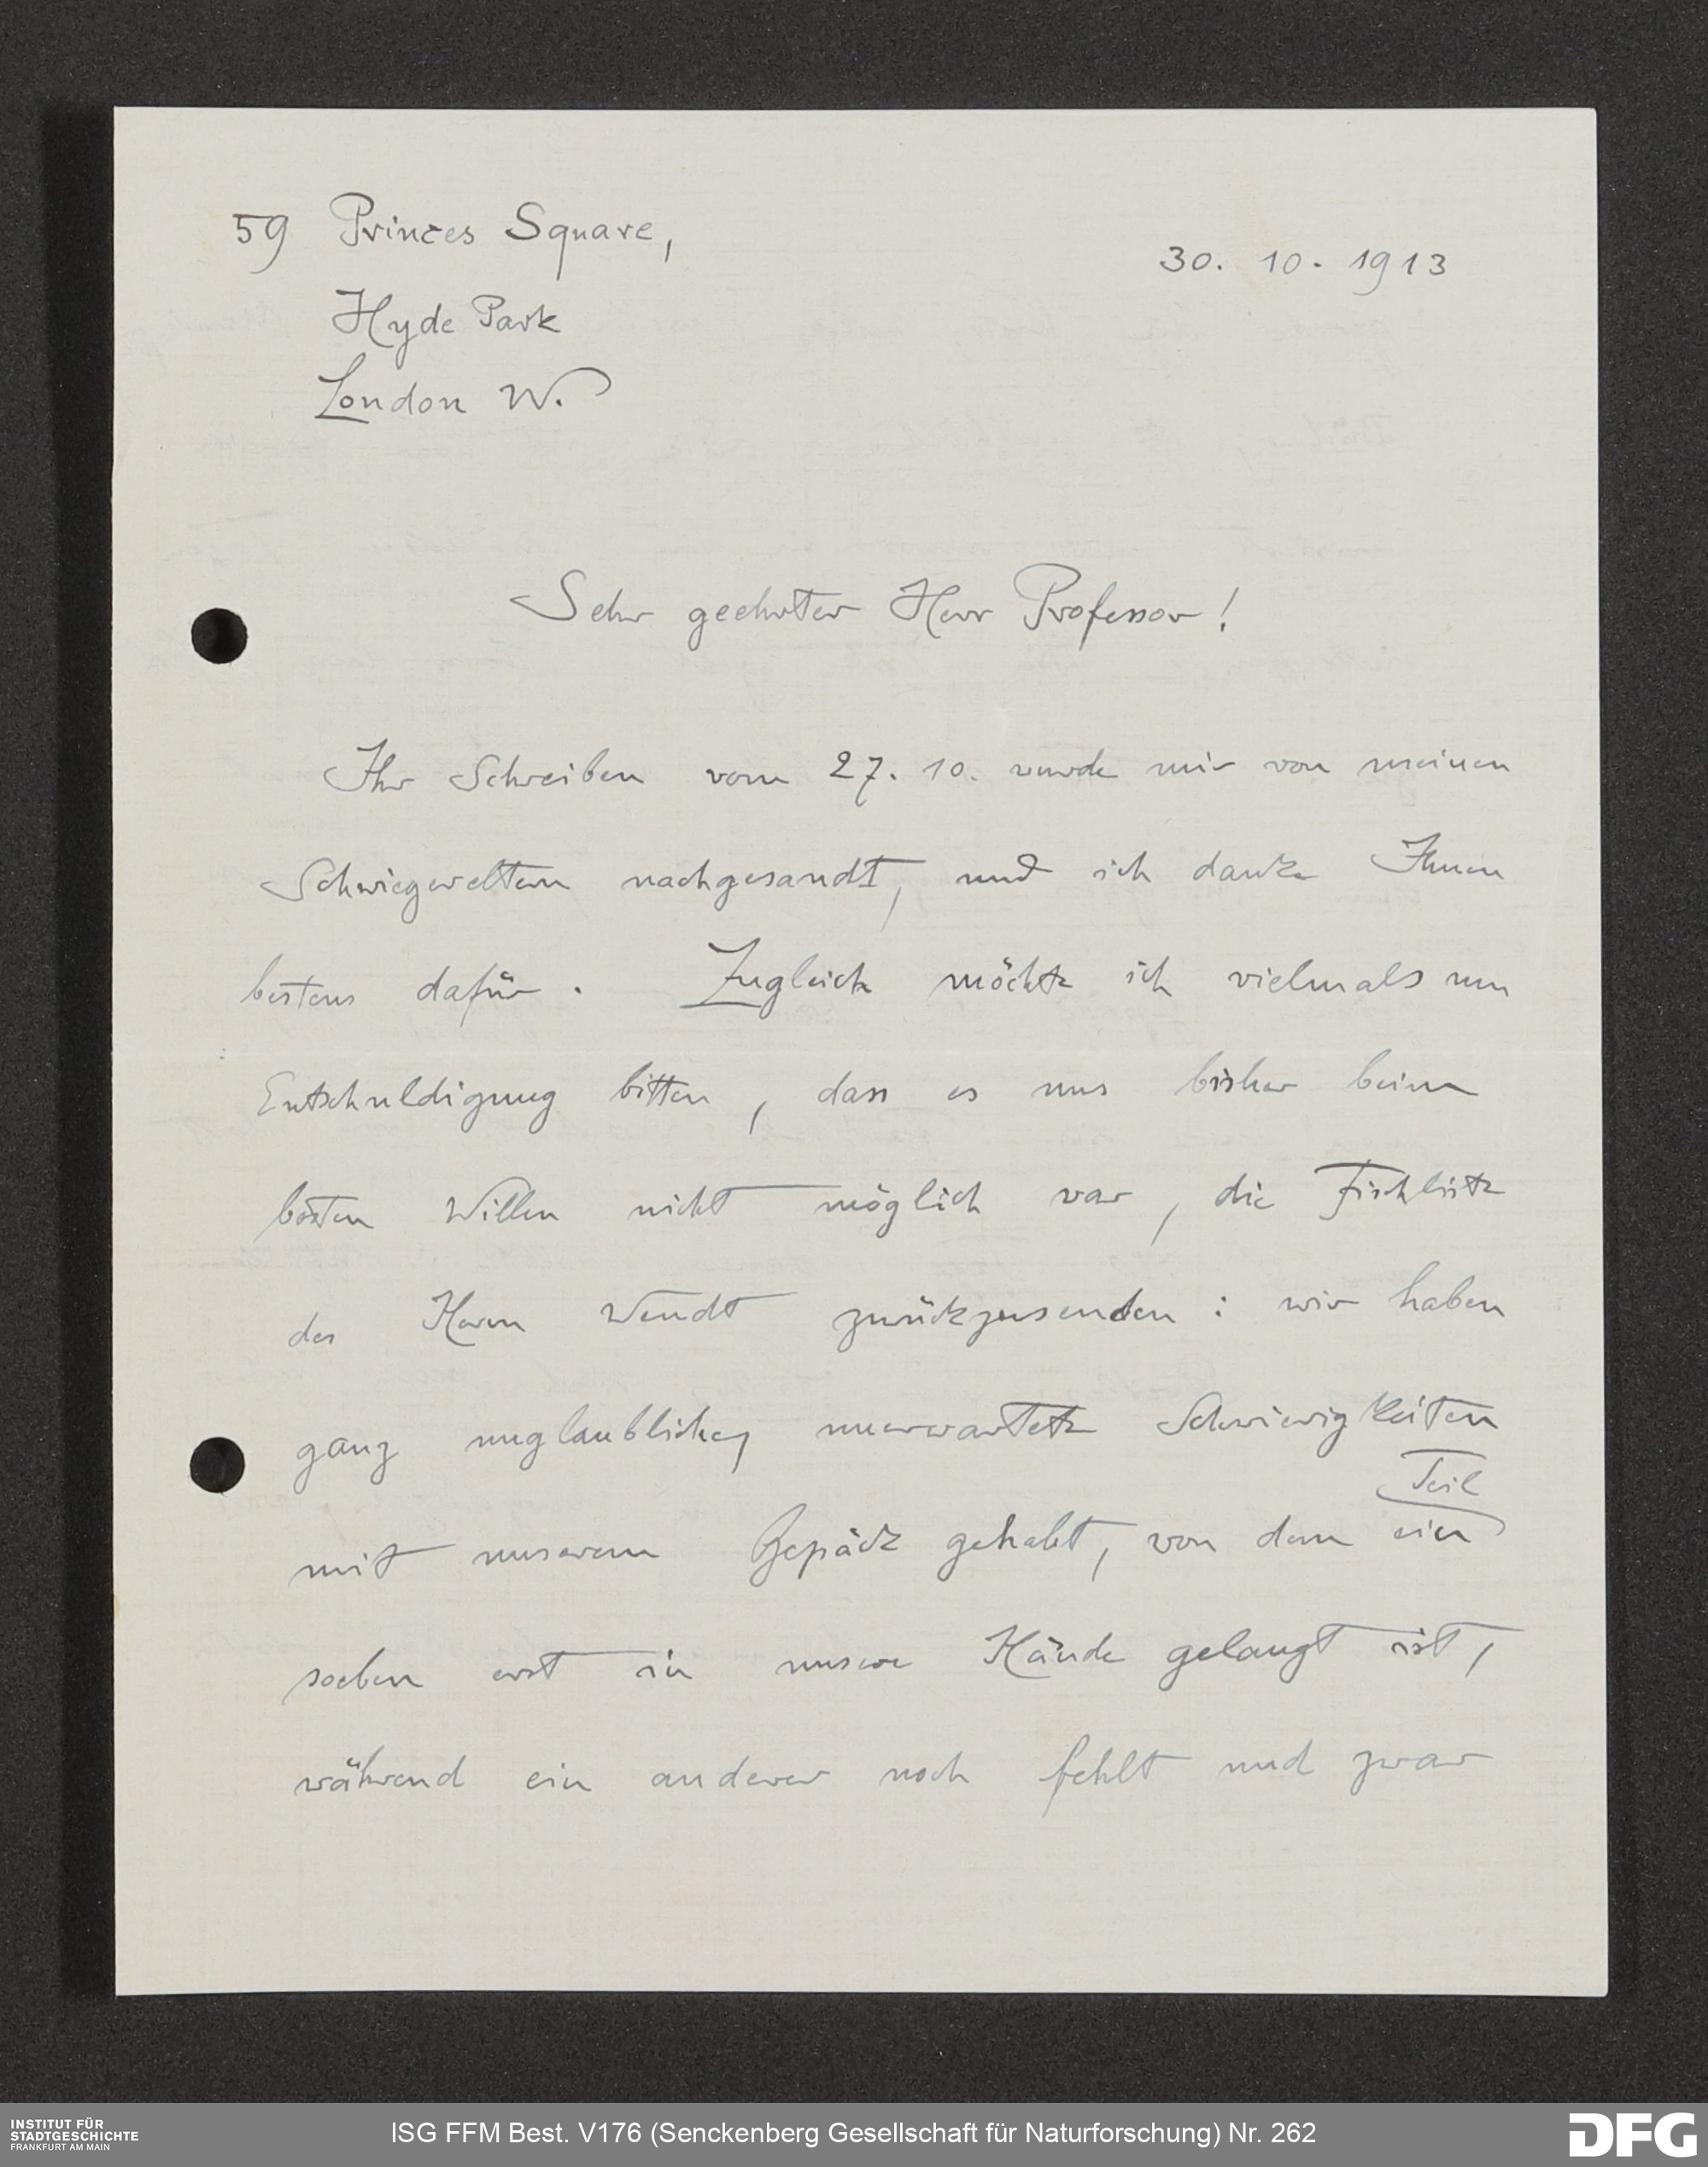 59 Princes Square,
30. 10. 1913
Hyde Park
London W.
Sehr geehrter Herr Professor!
Ihr Schreiben vom 27. 10. wurde mir von meinen
Schwiegereltern nachgesandt, und ich danke Ihnen
bestens dafür. Zugleich möchte ich vielmals um
Entschuldigung bitten, dass es uns bisher beim
besten Willen nicht möglich war, die Fischliste
des Herrn Wendt zurückzusenden: wir haben
ganz unglaubliche, unerwartete Schwierigkeiten
mit unserem Gepäck gehabt, von dem ein Teil
soeben erst in unsere Hände gelangt ist,
während ein anderer noch fehlt und zwar
INSTITUT FÜR
STADTGESCHICHTE
FRANKFURT AM MAIN
ISG FFM Best. V176 (Senckenberg Gesellschaft für Naturforschung) Nr. 262
DFG